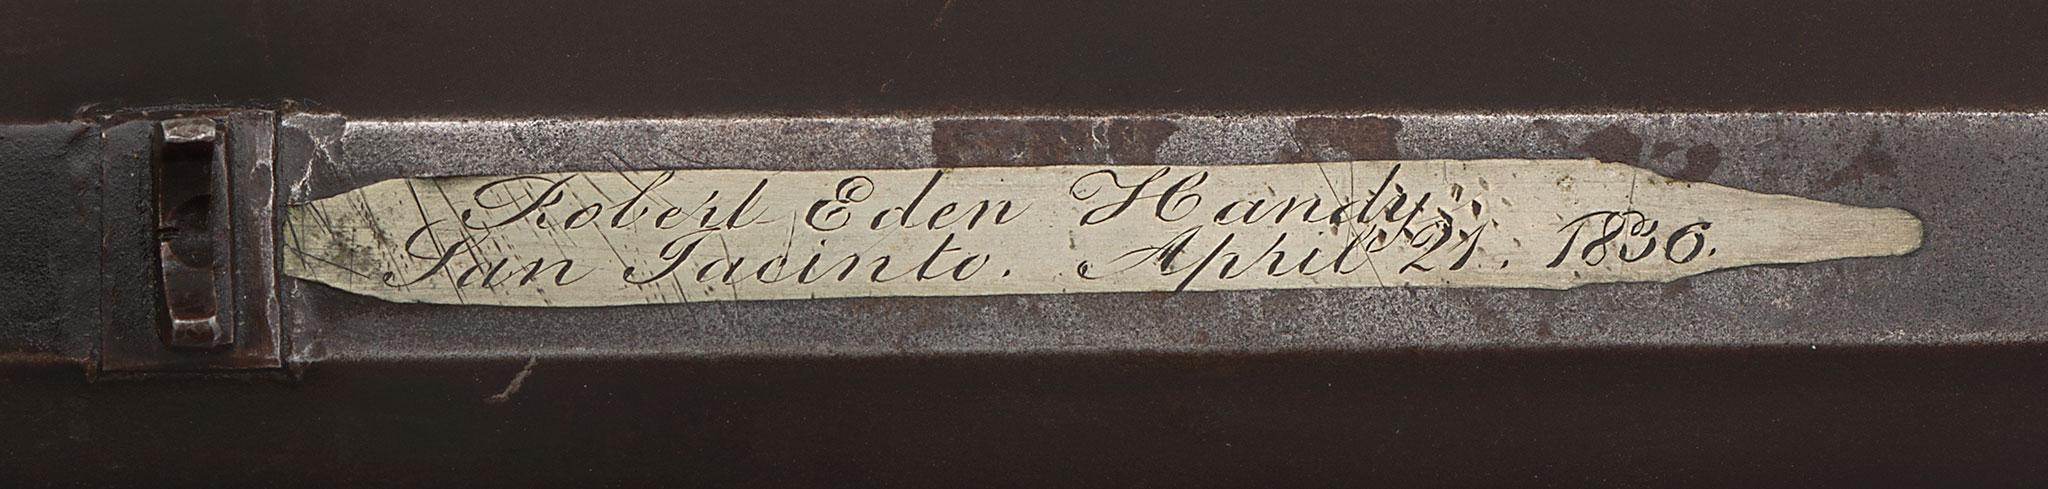 Robert Eden Handy
San Jacinto. April 21. 1836.